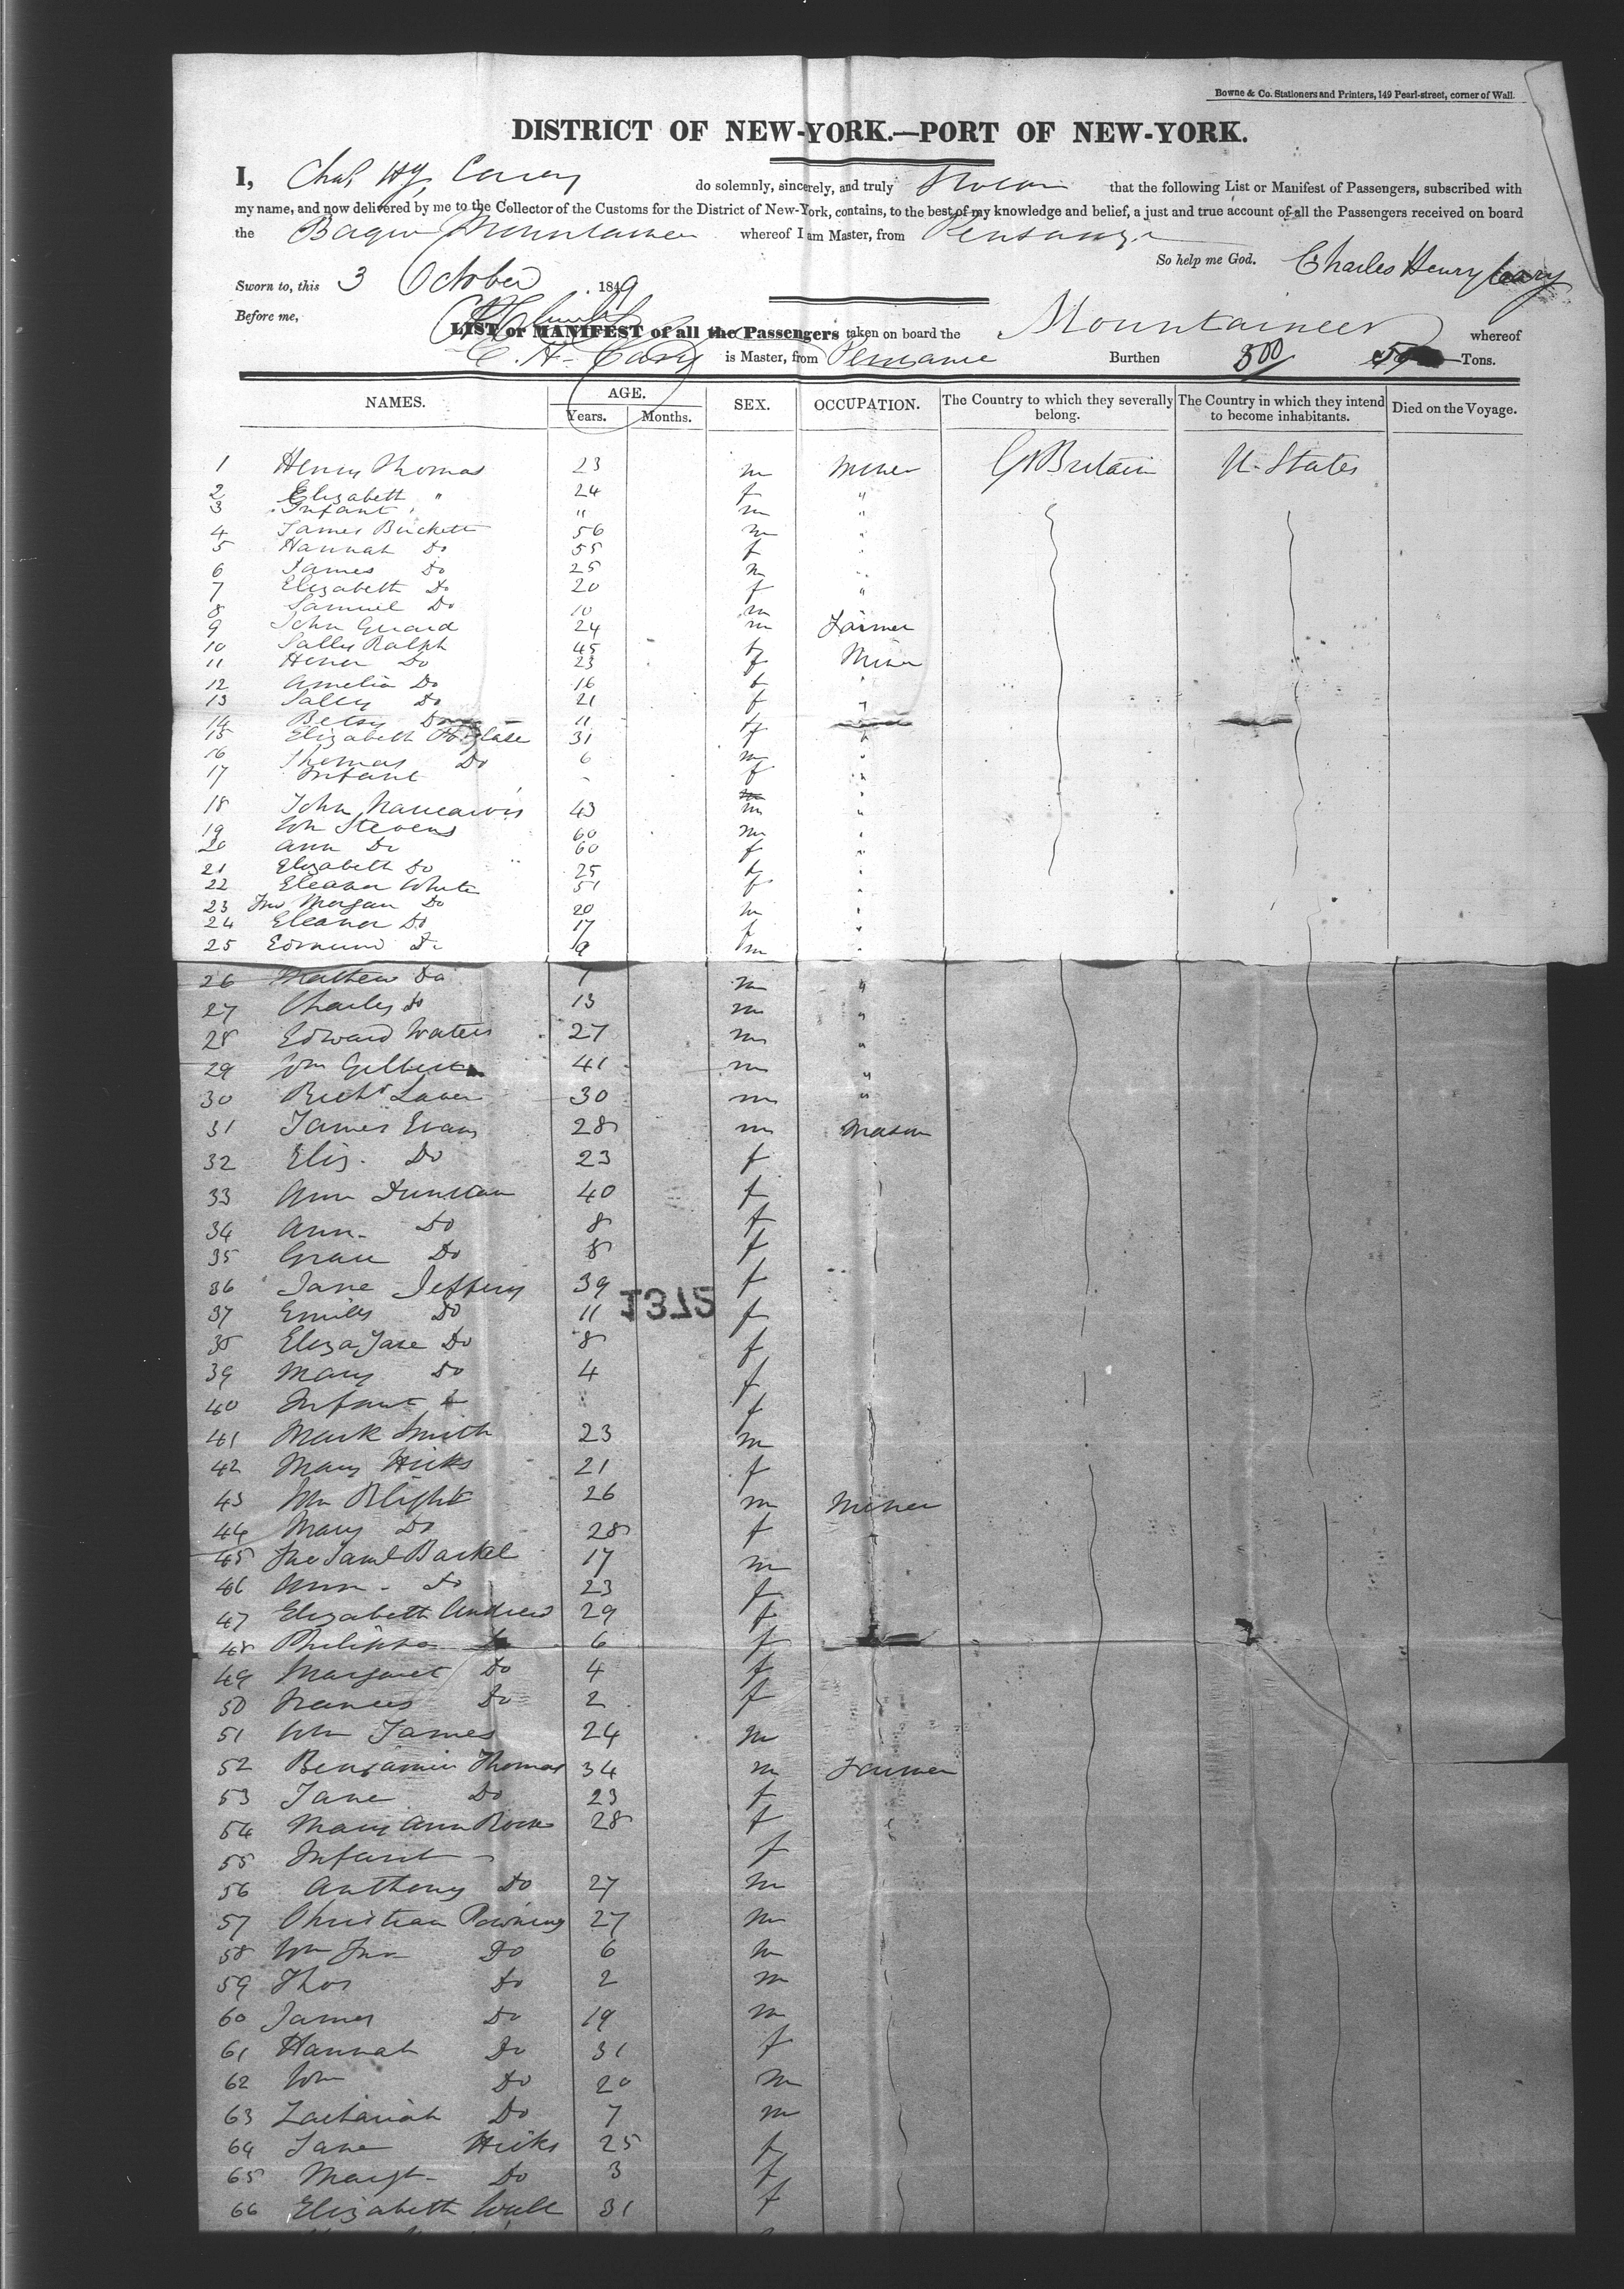 Bowne & Co. Stationers and Printers, 149 Pearl-street, corner of Wall.
DISTRICT OF NEW-YORK.—PORT OF NEW-YORK.
I, Chas Hy Carey do solemnly, sincerely, and truly that the following List or Manifest of Passengers, subscribed with
my name, and now delivered by me to the Collector of the Customs for the District of New-York, contains, to the best of my knowledge and belief, a just and true account of all the Passengers received on board
the Mountaineer whereof I am Master, from Penzance
So help me God. Charles Henry
Sworn to, this 3 October 1849
Before me,
LIST or MANIFEST of all the Passengers taken on board the Mountaineer whereof
C. H. is Master, from Penzance Burthen 300 Tons.
NAMES. AGE. Years. Months. SEX. OCCUPATION. The Country to which they severally belong. The Country in which they intend to become inhabitants. Died on the Voyage.
1 Henry Thomas 23 m Miner Gt Britain U. States
2 Elizabeth " 24 f "
3 Infant " m "
4 James 56 m
5 Hannah Do 55 f
6 James Do 25 m
7 Elizabeth Do 20 f "
8 Samuel Do 10 m
9 John 24 m Farmer
10 Sally Ralph 45 f
11 Do 23 f Miner
12 Amelia Do 16 f
13 Sally Do 21 f
14 Betsy Do 11 f
15 Elizabeth 31 f
16 Thomas Do 6 m
17 Infant f
18 John 43 m
19 Wm Stevens 60 m
20 Ann Do 60 f
21 Elizabeth Do 25 f
22 Eleanor White 51 f
23 Morgan Do 20 m
24 Eleanor Do 17 f
25 Edmund Do 9 m
26 Mathew Do 7 m "
27 Charles Do 13 m "
28 Edward Waters 27 m "
29 Wm Gilbert 41 m "
30 Richd 30 m "
31 James Evans 28 m Mason
32 Eliz. Do 23 f
33 Ann Dunstan 40 f
34 Ann. Do 8 f
35 Grace Do 8 f
36 Jane Jeffery 39 f
1372
37 Emily Do 11 f
38 Eliza Jane Do 8 f
39 Mary Do 4 f
40 Infant f
41 Mark Smith 23 m
42 Mary Hicks 21 f
43 Wm Blight 26 m Miner
44 Mary Do 28 f
45 17 m
46 Ann. Do 23 f
47 Elizabeth Andrew 29 f
48 Philippa Do 6 f
49 Margaret Do 4 f
50 Frances Do 2 f
51 Wm James 24 m
52 Benjamin Thomas 34 m Farmer
53 Jane Do 23 f
54 Mary Ann 28 f
55 Infant f
56 Anthony Do 27 m
57 Christian 27 m
58 Wm Do 6 m
59 Thos Do 2 m
60 James Do 19 m
61 Hannah Do 31 f
62 Wm Do 20 m
63 Zachariah Do 7 m
64 Jane Hicks 25 f
65 Margt Do 3 f
66 Elizabeth 31 f